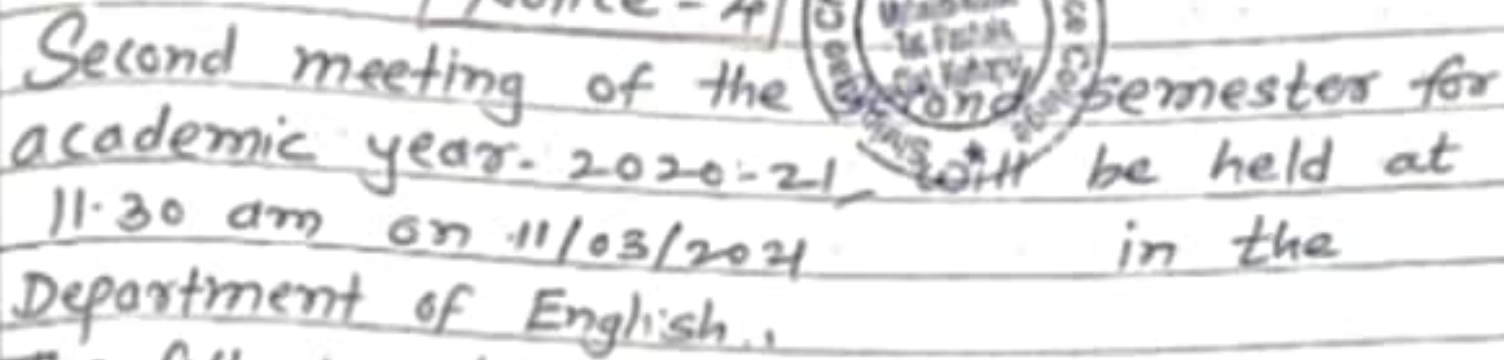 Notice - 4
Second meeting of the second semester for
academic year. 2020-21, will be held at
11.30 am on 11/03/2021 in the
Department of English..